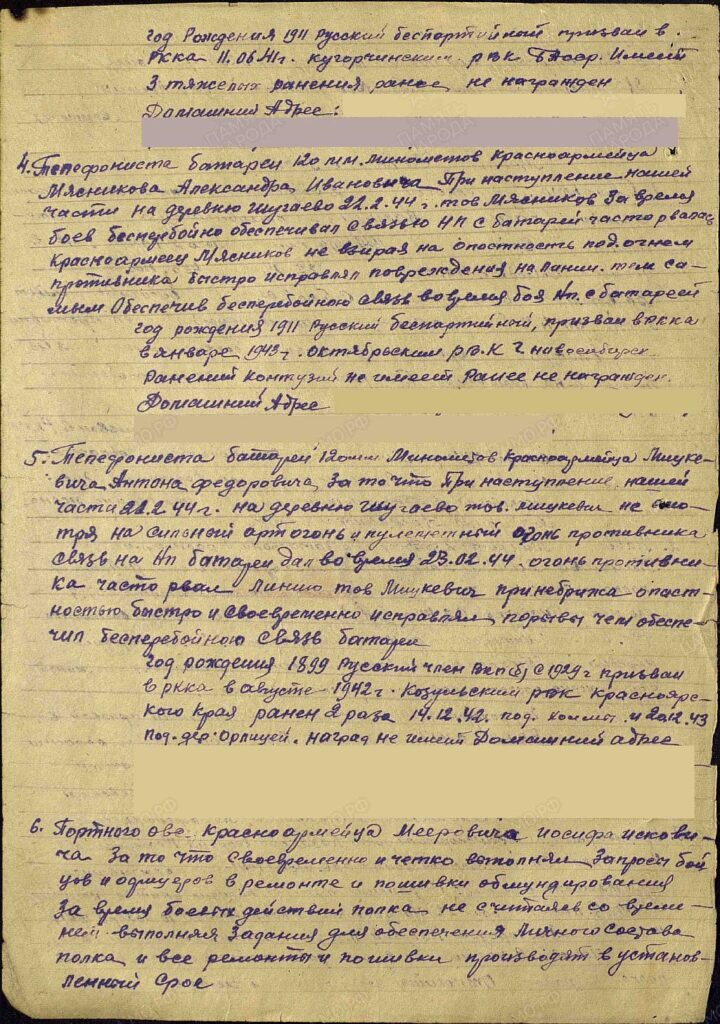 год Рождения 1911 Русский беспортийной призван в.
Ркка 11.06.41г. кугорчинским рвк БАсср. Имеет
3 тяжелых ранения ранее не награжден
Домашний Адрес:
4. Телефониста батареи 120 мм. минометов Красноармейца
Мясникова Александра Ивановича При наступление нашей
части на деревню Шугаево 22.2.44г. тов Мясников За время
боев бесперебойно обеспечивал связью НП с батарей часто рвалась
Красноармеец Мясников не взирая на опастность под огнем
противника быстро исправлял повреждения на линии. тем са-
мым Обеспечив бесперебойною связь во время боя Нп. с батареей
год рождения 1911 Русский беспартийный, призван в Ркка
в январе 1943г. октябрьским Р.В.К г новосибирск
Ранений Контузий не имеет Ранее не награжден.
Домашний Адрес
5. Телефониста батареи 120мм Минометов Красноармейца Мицке-
вича Антона Федоровича За то что При наступление нашей
части 22.2.44г. на деревню Шугаево тов. мицкевич не смо-
тря на сильный артогонь и пулеметный огонь противника
связь на Нп батареи дал во время 23.02.44. огонь противни-
ка часто рвал линию тов Мицкевич принебрижа опаст-
ностью быстро и своевременно исправлял порывы чем обеспе-
чил бесперебойною связь батареи
год рождения 1899 Русский член Вкп(б) с 1929г призван
в ркка в августе 1942г. Козульским рвк Красноярс-
кого Края ранен 2 раза 14.12.42. под. и 20.12.43
под. дер. Орлицей. наград не имеет Домашний адрес
6. Портного овс Красноармейца Мееровича иосифа искови-
ча За то что своевременно и четко выполнял Запросы бой
цов и офицеров в ремонте и пошивки обмундирования
За время боевых действий полка не считаяв со време-
нем выполняя Задания для обеспечения личного состава
полка и все ремонты и пошивки производят в установ-
ленный Срос